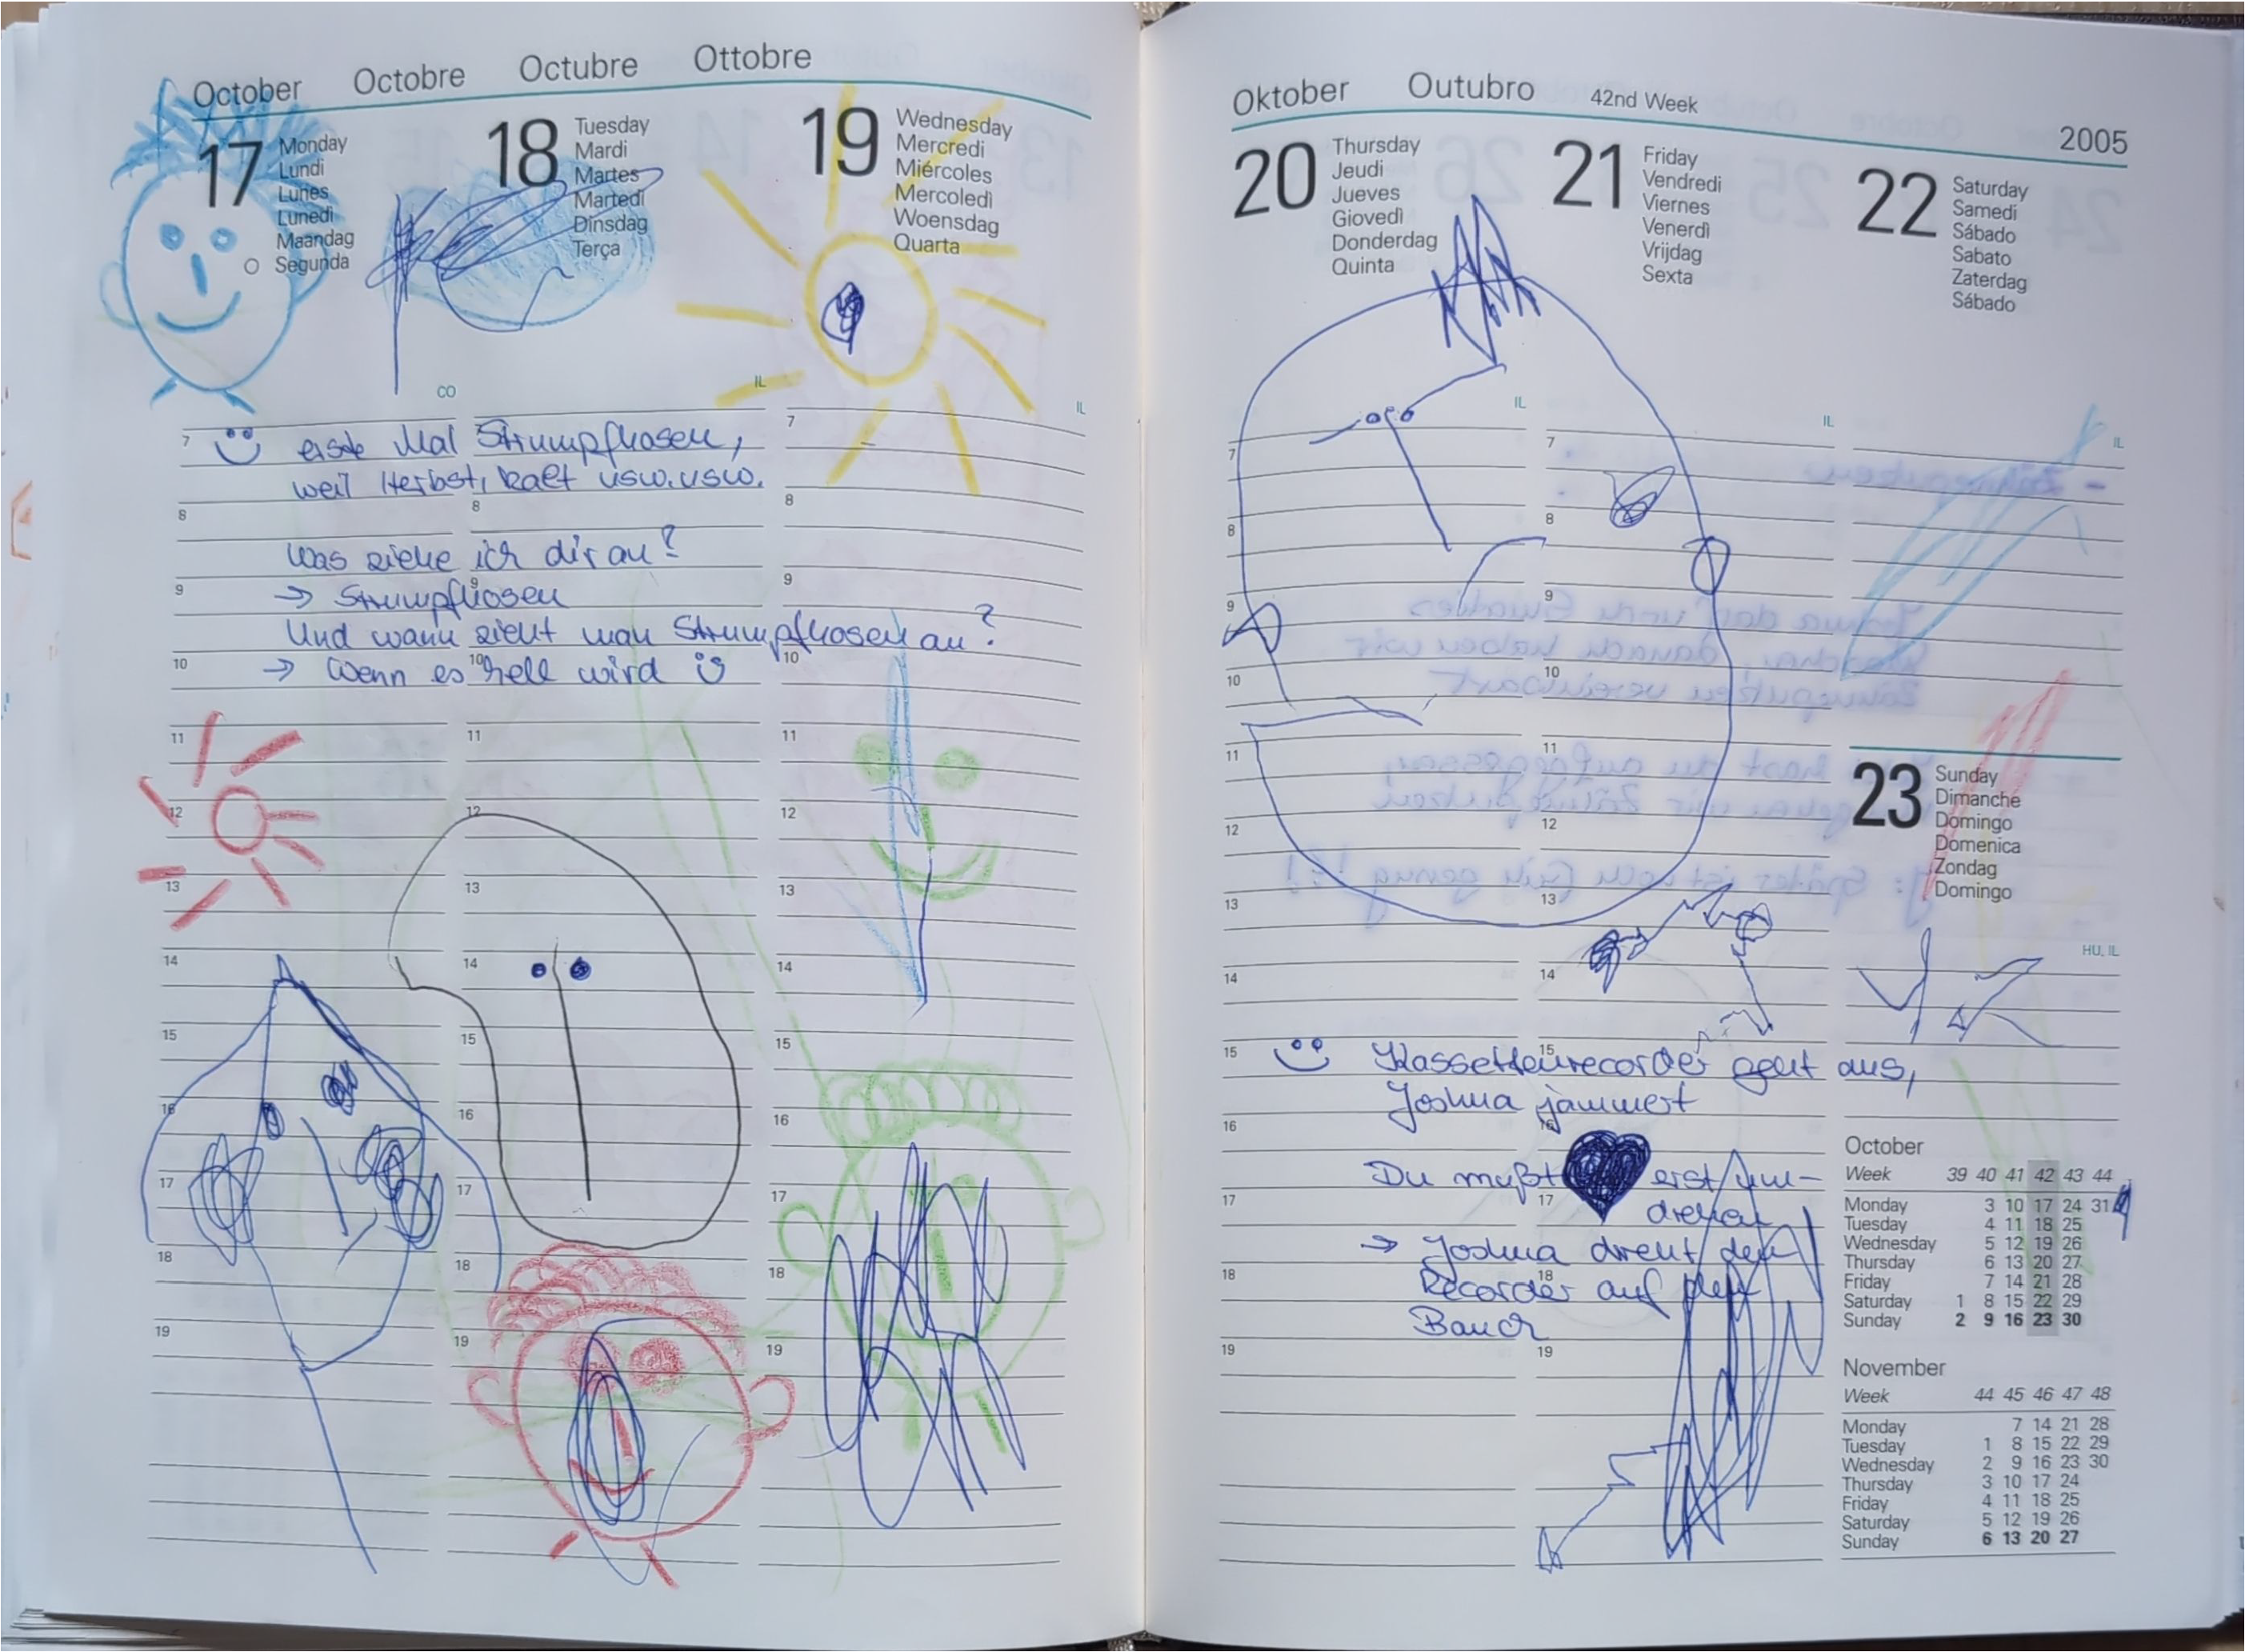 October Octobre Octubre Ottobre
17 Monday
Lundi
Lunes
Lunedì
Maandag
Segunda
CO
18 Tuesday
Mardi
Martes
Martedì
Dinsdag
Terça
IL
19 Wednesday
Mercredi
Miércoles
Mercoledì
Woensdag
Quarta
IL
erste Mal Strumpfhosen,
weil Herbst, kalt usw. usw.
Was ziehe ich dir an?
→ Strumpfhosen
Und wann zieht man Strumpfhosen an?
→ Wenn es hell wird
7 7
8 8 8
9 9 9
10 10 10
11 11 11
12 12 12
13 13 13
14 14 14
15 15 15
16 16 16
17 17 17
18 18 18
19 19 19
Oktober Outubro 42nd Week 2005
20 Thursday
Jeudi
Jueves
Giovedì
Donderdag
Quinta
IL
21 Friday
Vendredi
Viernes
Venerdì
Vrijdag
Sexta
IL
22 Saturday
Samedi
Sábado
Sabato
Zaterdag
Sábado
IL
7 7
8 8
9 9
10 10
11 11
12 12
13 13
14 14
15 15
16 16
17 17
18 18
19 19
23 Sunday
Dimanche
Domingo
Domenica
Zondag
Domingo
HU, IL
Kassettenrecorder geht aus,
Joshua jammert
Du mußt erst um-
drehen
→ Joshua dreht den
Recorder auf den
Bauch
October
Week 39 40 41 42 43 44
Monday 3 10 17 24 31
Tuesday 4 11 18 25
Wednesday 5 12 19 26
Thursday 6 13 20 27
Friday 7 14 21 28
Saturday 1 8 15 22 29
Sunday 2 9 16 23 30
November
Week 44 45 46 47 48
Monday 7 14 21 28
Tuesday 1 8 15 22 29
Wednesday 2 9 16 23 30
Thursday 3 10 17 24
Friday 4 11 18 25
Saturday 5 12 19 26
Sunday 6 13 20 27